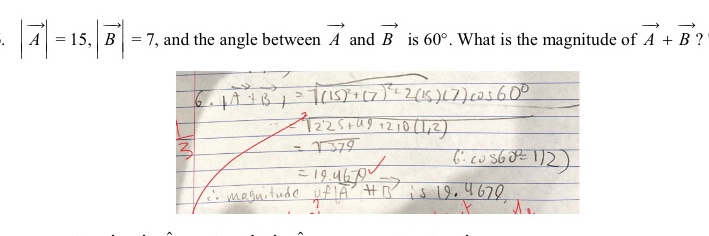 |A| = 15, |B| = 7, and the angle between A and B is 60°. What is the magnitude of A + B?
6. |A + B| = √(15)²+(7)²+2(15)(7)cos60°
1/3
= √225+49+210(1/2)
= √379
(∵ cos60°=1/2)
= 19.4679
∴ magnitude of |A + B is 19.4679.